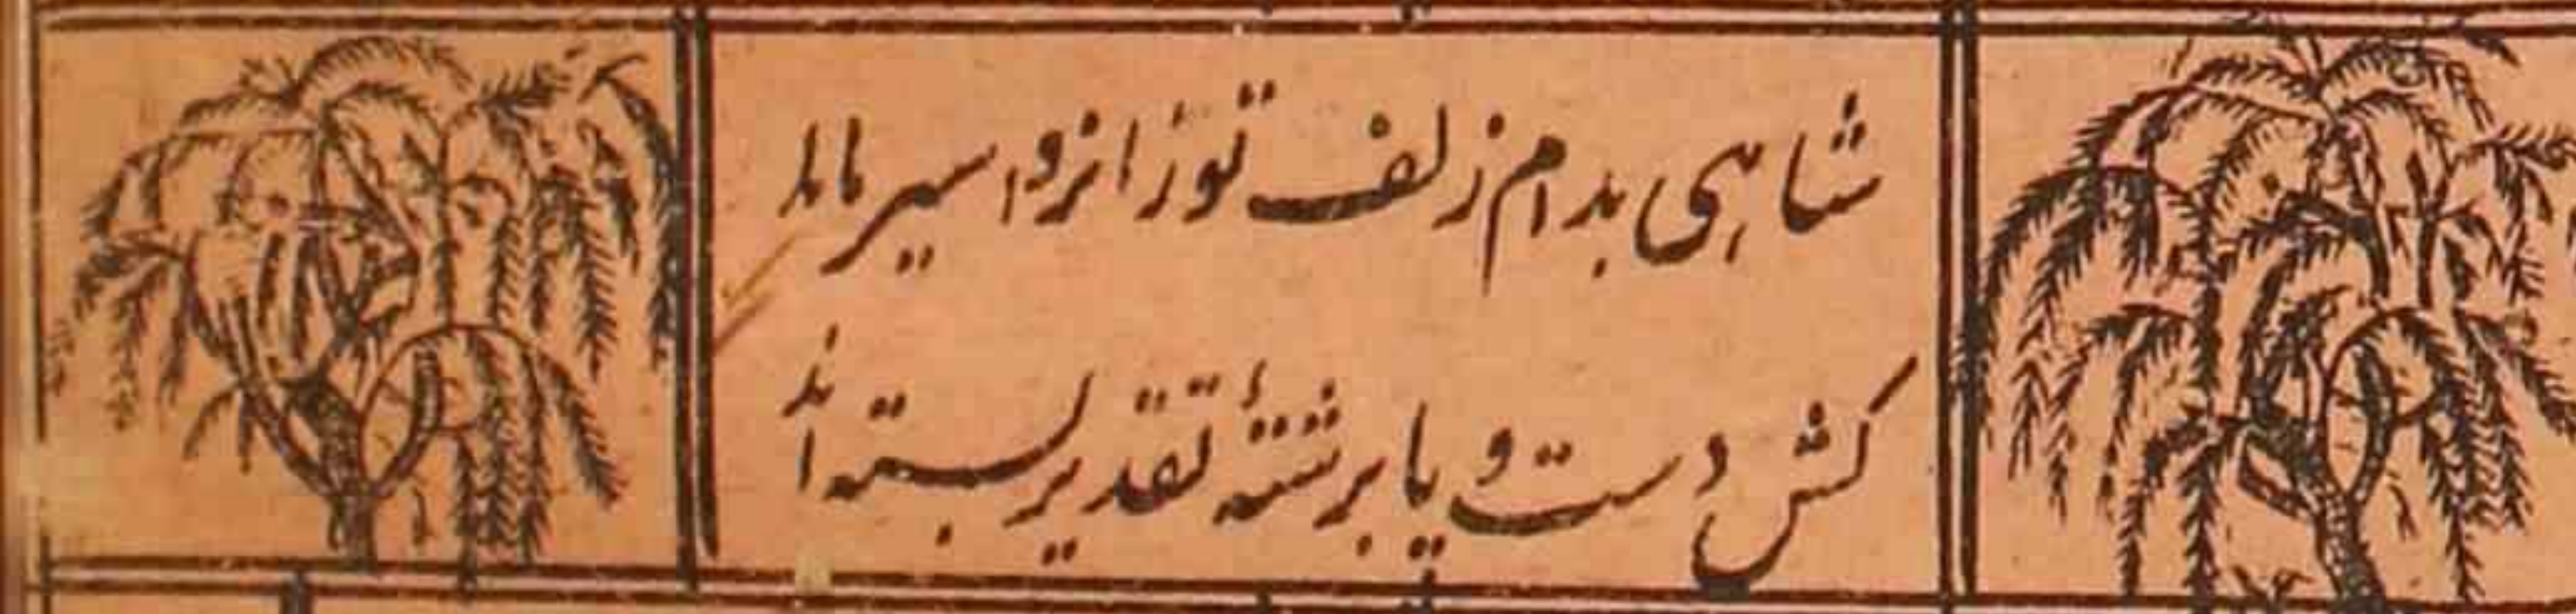 شاهی بدام زلف تو زانرو اسیر ماند
کش دست و پا برشتهٔ تقدیر بسته‌اند